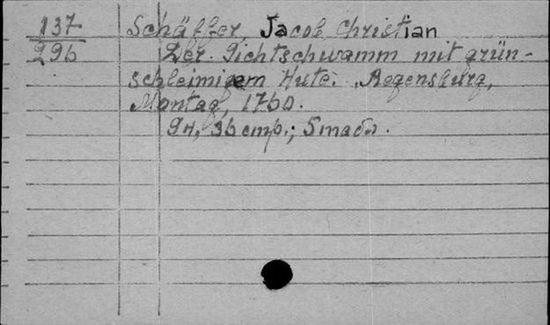 137 Schäffer, Jacob Christian
296 Der Gichtschwamm mit grün-
schleimigem Hute. Regensburg,
Montag, 1760.
36 стр.; 5 табл.